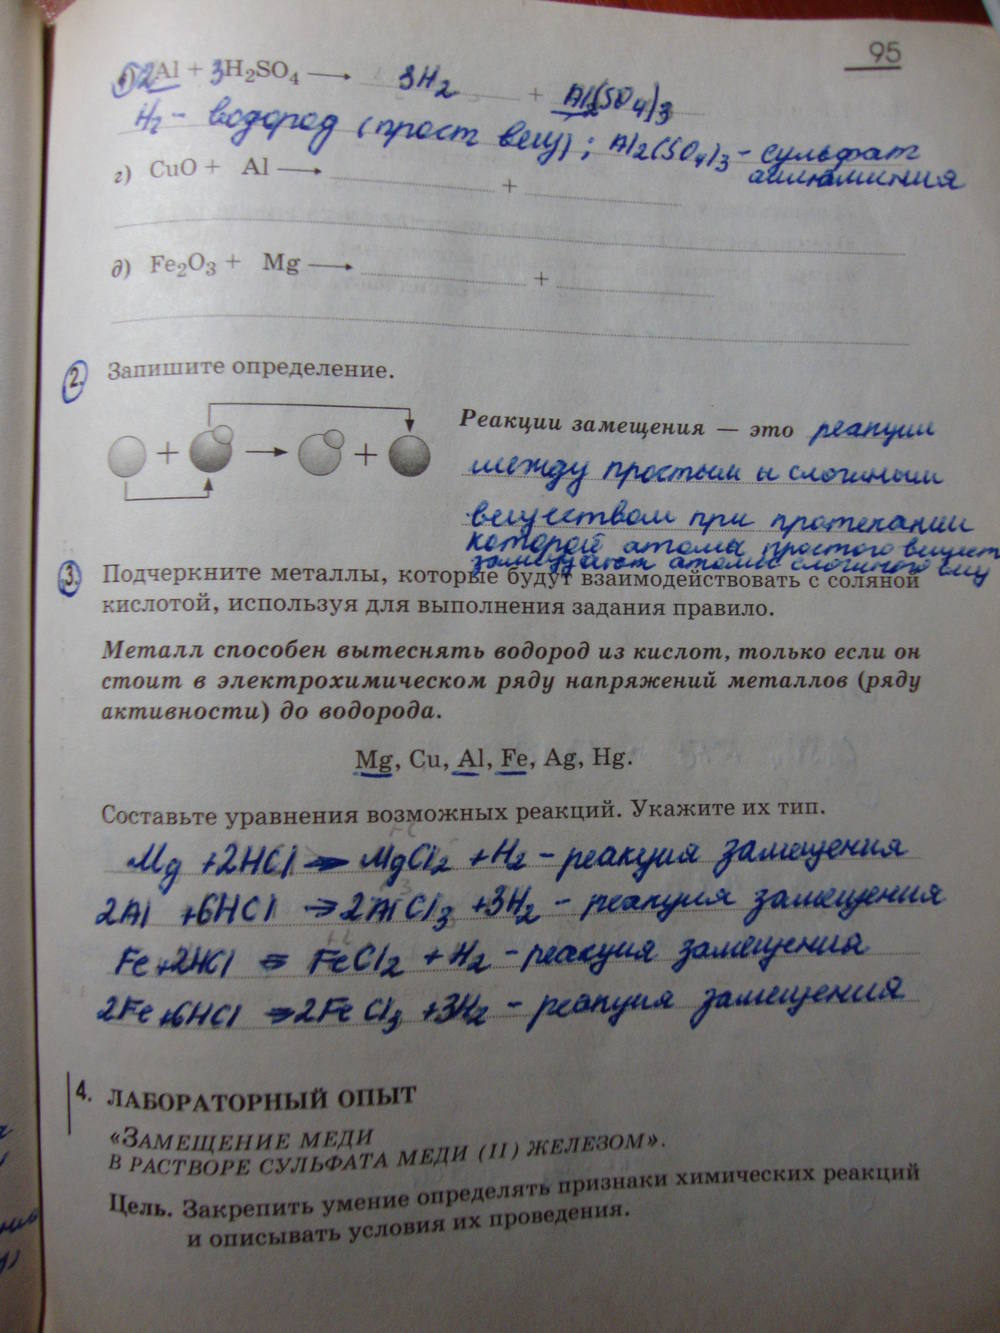 95
2Al + 3H₂SO₄ → 3H₂ + Al₂(SO₄)₃
H₂ - водород (прост вещ); Al₂(SO₄)₃ - сульфат
аллюминия
г) CuO + Al → +
д) Fe₂O₃ + Mg → +
2. Запишите определение.
Реакции замещения — это реакции
между простым и сложным
веществом при протекании
которой атомы простого вещест
замещают атомы сложного вещ
3. Подчеркните металлы, которые будут взаимодействовать с соляной
кислотой, используя для выполнения задания правило.
Металл способен вытеснять водород из кислот, только если он
стоит в электрохимическом ряду напряжений металлов (ряду
активности) до водорода.
Mg, Cu, Al, Fe, Ag, Hg.
Составьте уравнения возможных реакций. Укажите их тип.
Mg + 2HCl → MgCl₂ + H₂ - реакция замещения
2Al + 6HCl → 2AlCl₃ + 3H₂ - реакция замещения
Fe + 2HCl = FeCl₂ + H₂ - реакция замещения
2Fe + 6HCl → 2FeCl₃ + 3H₂ - реакция замещения
4. ЛАБОРАТОРНЫЙ ОПЫТ
«ЗАМЕЩЕНИЕ МЕДИ
В РАСТВОРЕ СУЛЬФАТА МЕДИ (II) ЖЕЛЕЗОМ».
Цель. Закрепить умение определять признаки химических реакций
и описывать условия их проведения.